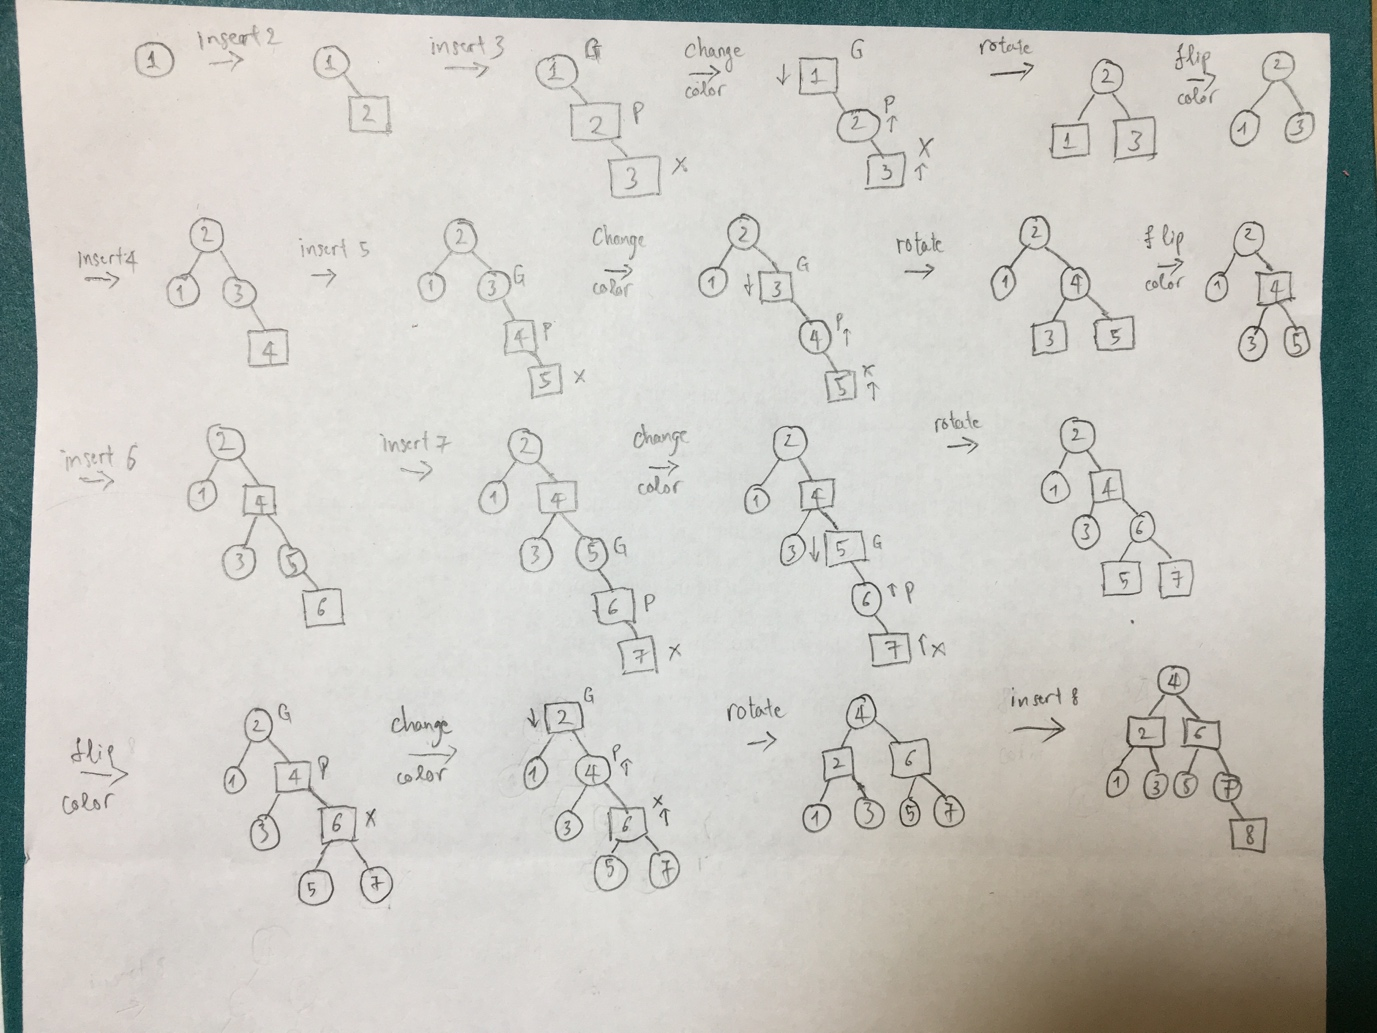 1 insert 2 1 2 insert 3 1 G 2 P 3 X change color 1 G 2 P 3 X rotate 2 1 3 flip color 2 1 3
insert 4 2 1 3 4 insert 5 2 1 3 G 4 P 5 X Change color 2 1 3 G 4 P 5 X rotate 2 1 4 3 5 flip color 2 1 4 3 5
insert 6 2 1 4 3 5 6 insert 7 2 1 4 3 5 G 6 P 7 X change color 2 1 4 3 5 G 6 P 7 X rotate 2 1 4 3 6 5 7
flip color 2 G 1 4 P 3 6 X 5 7 change color 2 G 1 4 P 3 6 X 5 7 rotate 4 2 6 1 3 5 7 insert 8 4 2 6 1 3 5 7 8